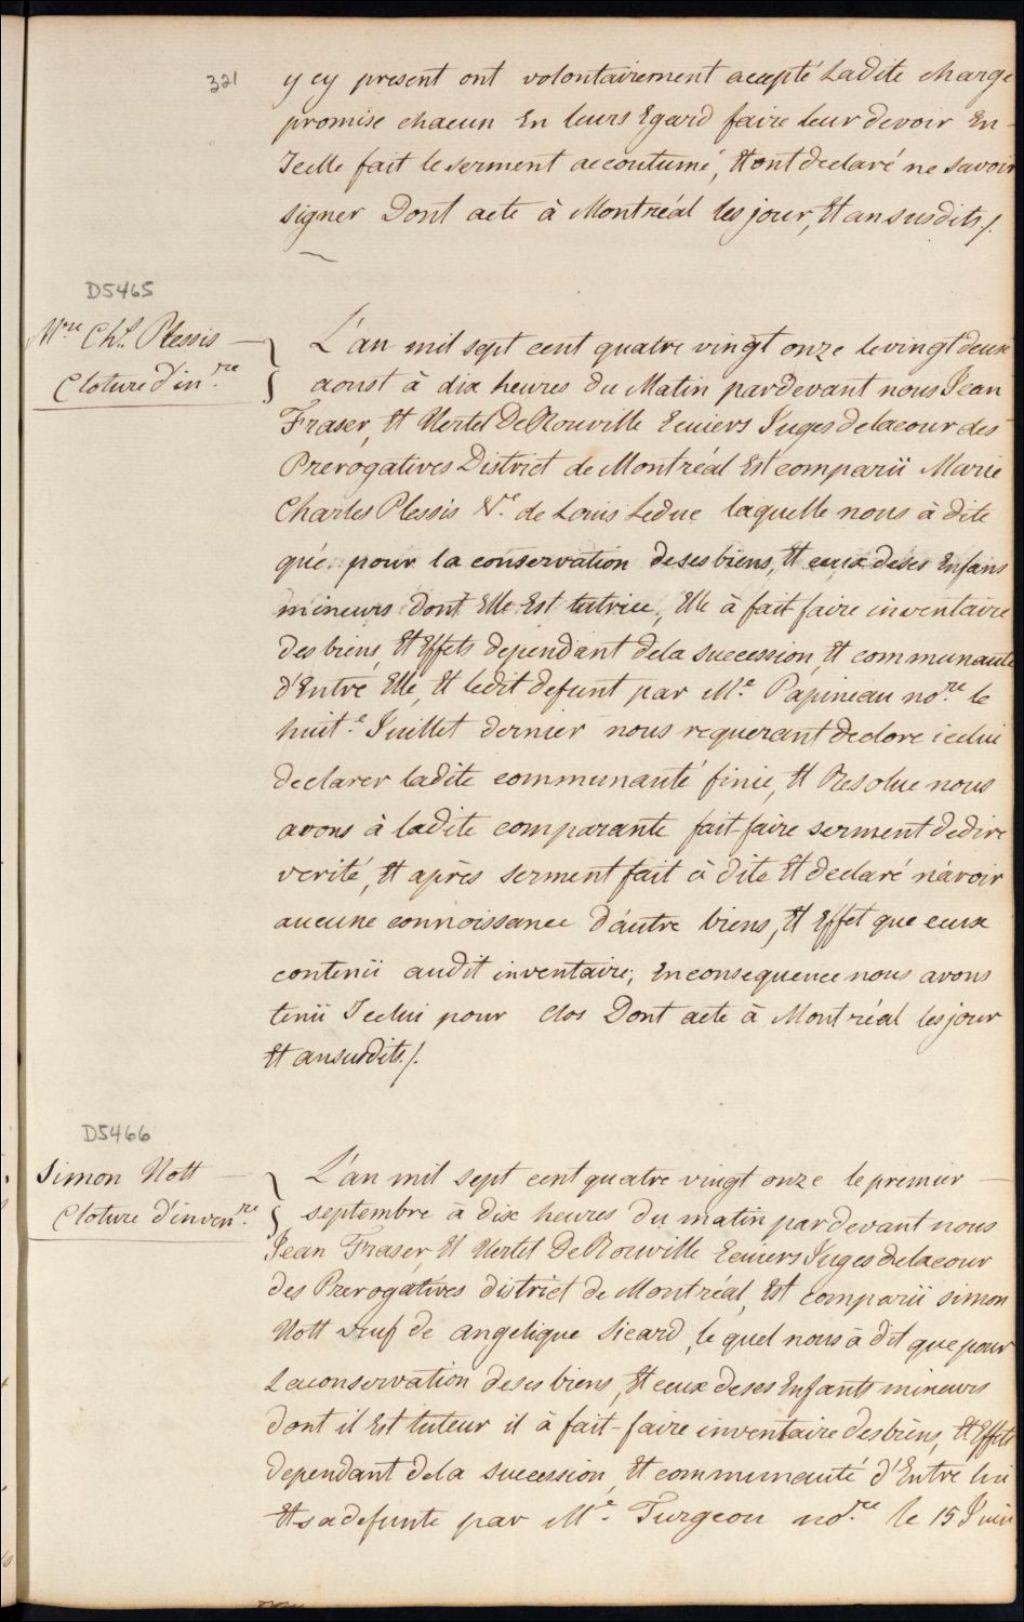 321
y cy present ont volontairement accepté Ladite charge
promise chacun En leurs Egard faire leur devoir En
Icelle fait le serment accoutumé, Et ont declaré ne savoir
signer Dont acte à Montréal les jour, Et an susdits./.
D5465
Mrie Chls Plessis
Cloture d'inre
L'an mil sept cent quatre vingt onze le vingt deux
aoust à dix heures du Matin pardevant nous Jean
Fraser, Et Hertel De Rouville Ecuiers Juges de la cour des
Prerogatives District de Montréal Est comparü Marie
Charles Plessis Ve. de Louis Leduc laquelle nous à dite
que pour la conservation de ses biens, Et ceux de ses Enfans
mineurs dont Elle Est tutrice, Elle à fait faire inventaire
des biens, Et Effets dependant de la succession, Et communauté
d'Entre Elle, Et ledit defunt par Me. Papineau nore. le
huite. Juillet dernier nous requerant de clore icelui
declarer ladite communauté finie, Et Resolue nous
avons à ladite comparante fait faire serment de dire
verité, Et après serment fait à dite Et declaré n'avoir
aucune connoissance d'autre biens, Et Effet que ceux
contenü audit inventaire; En consequence nous avons
tenü Icelui pour clos Dont acte à Montréal les jour
Et an susdits./.
D5466
Simon Nott
Cloture d'invenre
L'an mil sept cent quatre vingt onze le premier
septembre à dix heures du matin pardevant nous
Jean Fraser, Et Hertel De Rouville Ecuiers Juges de la cour
des Prerogatives district de Montréal, Est comparü simon
Nott veuf de angelique Sicard, le quel nous à dit que pour
La conservation de ses biens, Et ceux de ses Enfants mineurs
dont il Est tuteur il à fait faire inventaire des biens, Et Effets
dependant de la succession, Et communauté d'Entre lui
Et sa defunte par Me. Turgeon nore. le 15 Juin